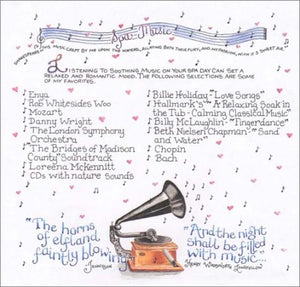 Spa Music
This music crept by me upon the waters, allaying both their fury, and my passion, with its sweet air
Listening to soothing music on your spa day can set a
relaxed and romantic mood. The following selections are some
of my favorites.
Enya
Rob Whitesides Woo
Mozart
Danny Wright
The London Symphony
Orchestra
"The Bridges of Madison
County" Soundtrack
Loreena McKennitt
CDs with nature sounds
Billie Holiday - "Love Songs"
Hallmark's "A Relaxing Soak in
the Tub - Calming Classical Music"
Billy McLaughlin - "Fingerdance"
Beth Nielsen Chapman - "Sand
and Water"
Chopin
Bach
"The horns
of elfland
faintly blowing"
Tennyson
"And the night
shall be filled
with music..."
Henry Wadsworth Longfellow